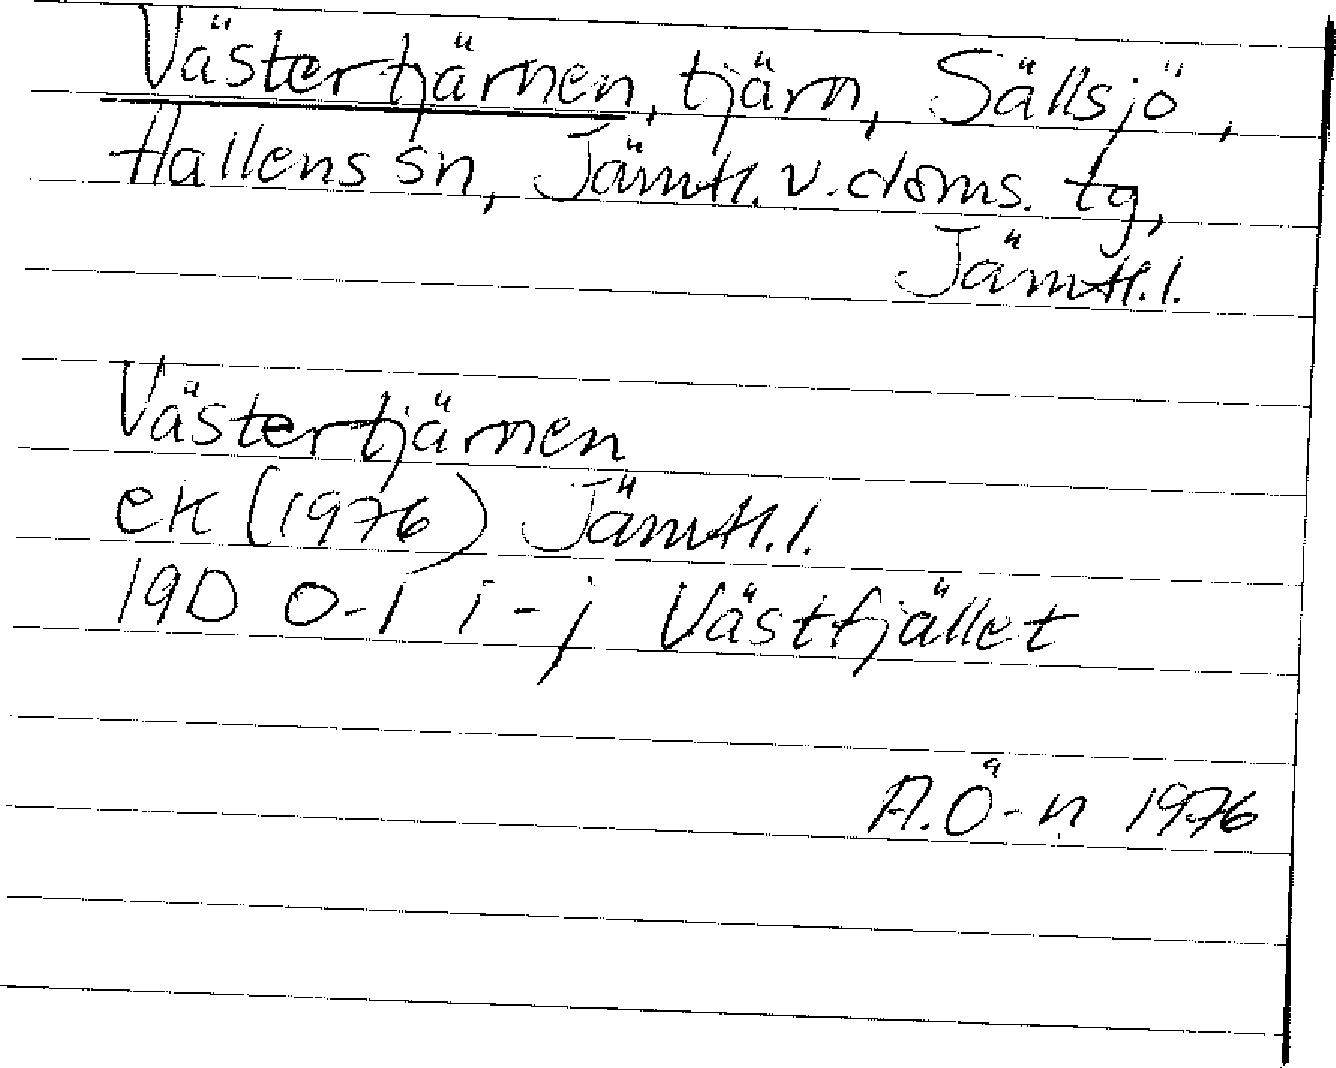 Västertjärnen, tjärn, Sällsjö,
Hallens sn, Jämtl. v. doms. tg,
Jämtl. l.
Västertjärnen
ek (1976) Jämtl. l.
19D 0-1 i-j Västfjället
A. Ö-n 1976